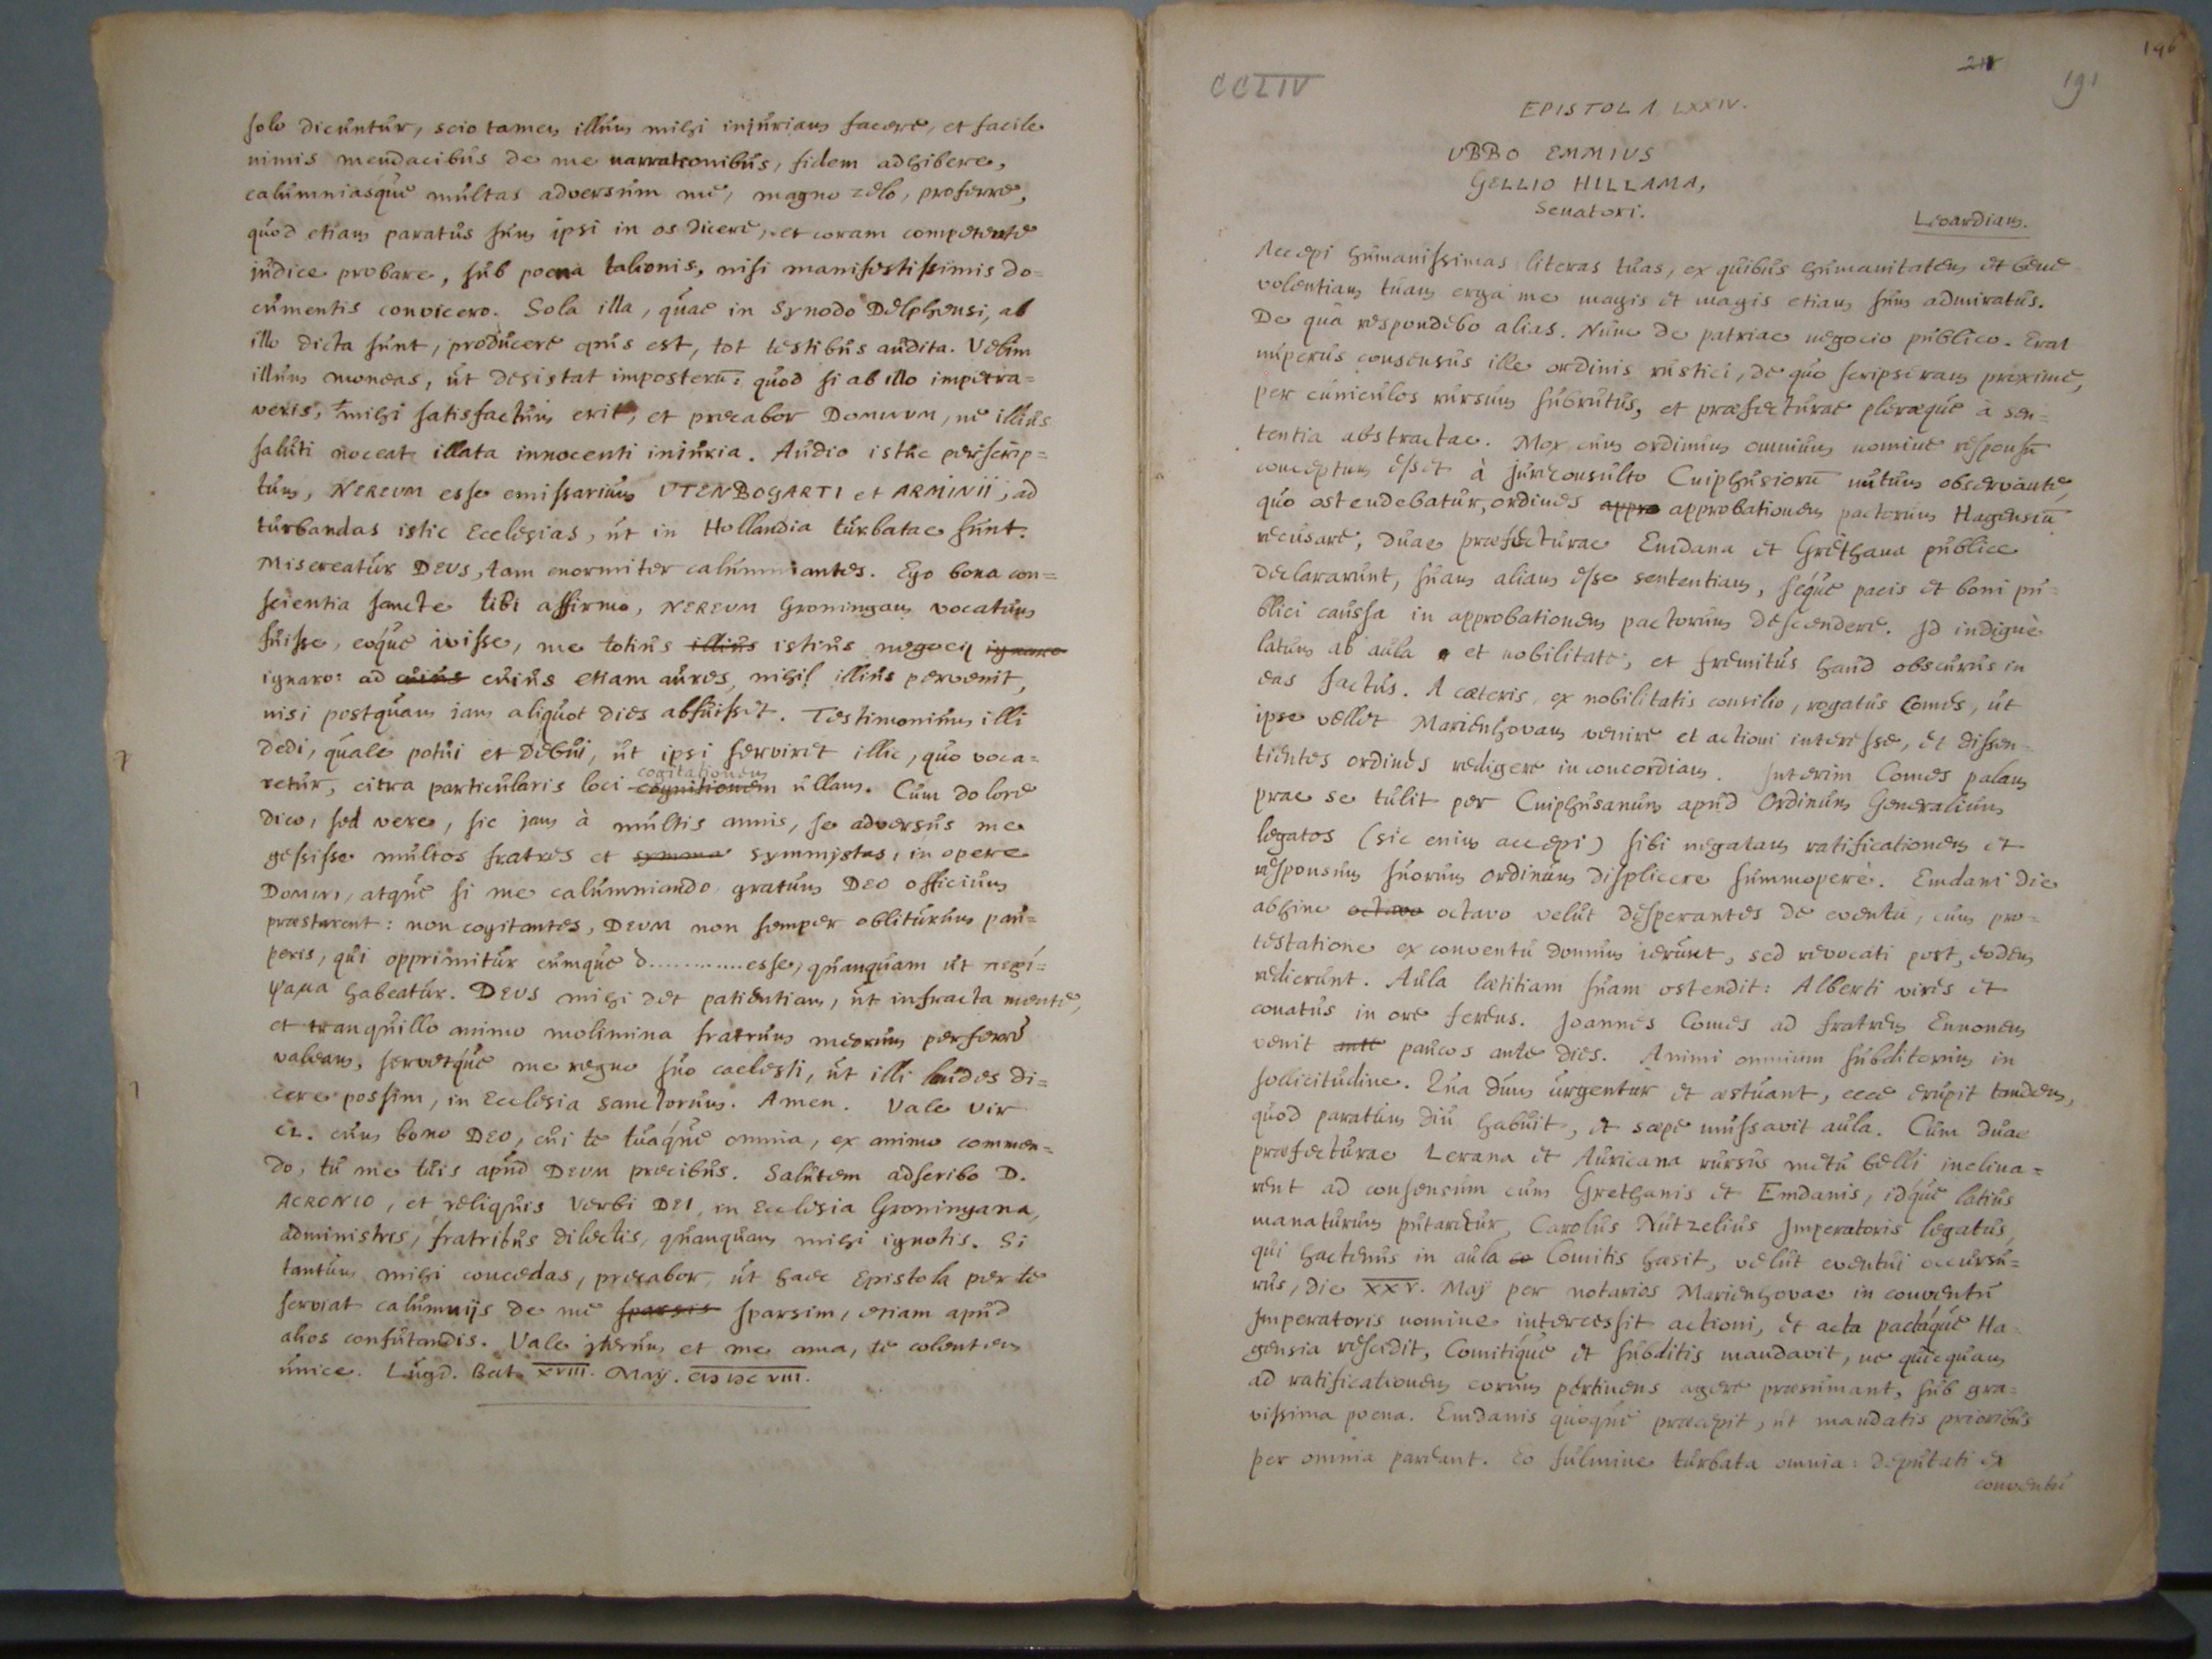 solo dicuntur, scio tamen illum mihi injuriam facere, et facile
nimis mendacibus de me narrationibus, fidem adhibere,
calumniasque multas adversum me, magno zelo, proferre,
quod etiam paratus sum ipsi in os dicere, et coram competente
judice probare, sub poena talionis, nisi manifestissimis do=
cumentis convicero. Sola illa, quae in Synodo Delphensi, ab
illo dicta sunt, producere opus est, tot testibus audita. Velim
illum moneas, ut desistat imposterū: quod si ab illo impetra=
veris, mihi satisfactum erit, et precabor DOMINUM, ne illius
saluti noceat illata innocenti injuria. Audio isthic perscrip=
tum, NEREUM esse emissarium UTENBOGARTI et ARMINII, ad
turbandas istic Ecclesias, ut in Hollandia turbatae sunt.
Misereatur DEUS, tam enormiter calumniantes. Ego bona con=
scientia sancte tibi affirmo, NEREUM Groningam vocatum
fuisse, eoque ivisse, me totius illius istius negocij ignaro
ignaro: ad cuius cuius etiam aures, nihil illius pervenit,
nisi postquam jam aliquot dies abfuisset. Testimonium illi
dedi, quale potui et debui, ut ipsi serviret illic, quo voca=
cogitationem
retur, citra particularis loci cognitionem ullam. Cum dolore
dico, sed vere, sic jam à multis annis, se adversus me
gessisse multos fratres et symma symmystas, in opere
DOMINI, atque si me calumniando gratum DEO officium
praestarent: non cogitantes, DEUM non semper obliturum pau=
peris, qui opprimitur eumque d............esse, quanquam ut περί=
ψαμα habeatur. DEUS mihi det patientiam, ut infracta mente,
et tranquillo animo molimina fratrum meorum perferre
valeam, servetque me regno suo caelesti, ut illi laudes di=
cere possim, in Ecclesia Sanctorum. Amen. Vale vir
cl. cum bono DEO, cui te tuaque omnia, ex animo commen=
do, tu me tuis apud DEUM precibus. Salutem adscribo D.
ACRONIO, et reliquis Verbi DEI, in Ecclesia Groningana,
administris, fratribus dilectis, quanquam mihi ignotis. Si
tantum mihi concedas, precabor ut haec Epistola per te
serviat calumnijs de me sparsis sparsim, etiam apud
alios confutandis. Vale iterum et me ama, te colentem
unice. Lugd. Bat. XVIII. Maij. CIↃ IↃC VIII.
CCLIV
191
196
EPISTOLA LXXIV.
UBBO EMMIUS
GELLIO HILLAMA,
Senatori.
Leoardiam.
Accepi humanissimas literas tuas, ex quibus humanitatem et bene
volentiam tuam erga me magis et magis etiam sum admiratus.
De qua respondebo alias. Nunc de patriae negocio publico. Erat
nuperus consensus ille ordinis rustici, de quo scripseram proxime,
per cuniculos rursum subrutus, et praefecturae pleraeque à sen=
tentia abstractae. Mox cum ordinum omnium nomine responsū
conceptum esset à jureconsulto Cniphusiorū nutum observante,
quo ostendebatur, ordines appro approbationem pactorum Hagensiū
recusare, duae praefecturae Emdana et Grethana publice
declararunt, suam aliam esse sententiam, seque pacis et boni pu=
blici caussa in approbationem pactorum descendere. Id indigne
latum ab aula et nobilitate, et fremitus haud obscurus in
eas factus. A caeteris, ex nobilitatis consilio, rogatus Comes, ut
ipse vellet Marienhovam venire et actioni interesse, et dissen=
tientes ordines redigere in concordiam. Interim Comes palam
prae se tulit per Cniphusanum apud Ordinum Generalium
legatos (sic enim accepi) sibi negatam ratificationem et
responsum suorum ordinum displicere summopere. Emdani die
abhinc octavo octavo velut desperantes de eventu, cum pro=
testatione ex conventu domum ierunt, sed revocati post, eodem
redierunt. Aula laetitiam suam ostendit: Alberti vires et
conatus in ore ferens. Joannes Comes ad fratrem Ennonem
venit ante paucos ante dies. Animi omnium subditorum in
sollicitudine. Qua dum urgentur et aestuant, ecce erupit tandem,
quod paratum diu habuit, et saepe mussavit aula. Cum duae
praefecturae Lerana et Auricana rursus metu belli inclina=
rent ad consensum cum Grethanis et Emdanis, idque latius
manaturum putaretur, Carolus Nutzelius Imperatoris legatus,
qui hactenus in aula co Comitis haesit, velut eventui occursu=
rus, die XXV. Maij per notarios Marienhovae in conventu
Imperatoris nomine intercessit actioni, et acta pactaque Ha=
gensia rescidit, Comitique et subditis mandavit, ne quicquam
ad ratificationem eorum pertinens agere praesumant, sub gra=
vissima poena. Emdanis quoque praecepit, ut mandatis prioribus
per omnia pareant. Eo fulmine turbata omnia: deputati ex
conventu